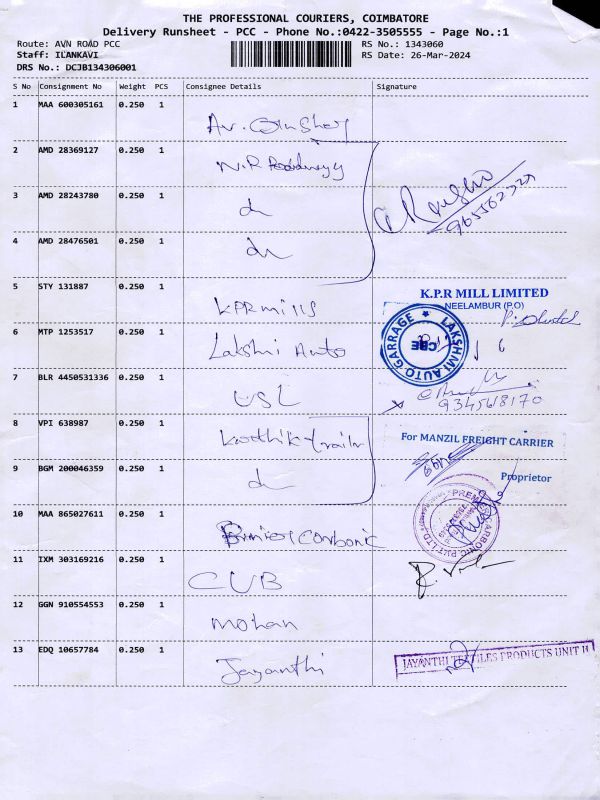 THE PROFESSIONAL COURIERS, COIMBATORE
Delivery Runsheet - PCC - Phone No.:0422-3505555 - Page No.:1
Route: AVN ROAD PCC
Staff: ILANKAVI
DRS No.: DCJB134306001
RS No.: 1343060
RS Date: 26-Mar-2024
S No Consignment No Weight PCS Consignee Details Signature
1 MAA 600305161 0.250 1
2 AMD 28369127 0.250 1 N.R
3 AMD 28243780 0.250 1
4 AMD 28476501 0.250 1
5 STY 131887 0.250 1 KPR mills
K.P.R MILL LIMITED
NEELAMBUR (P.O)
6 MTP 1253517 0.250 1 Lakshmi Auto
LAKSHMI AUTO GARRAGE
CBE
7 BLR 4450531336 0.250 1 USL
8 VPI 638987 0.250 1 Karthik trailer
For MANZIL FREIGHT CARRIER
9 BGM 200046359 0.250 1
Proprietor
10 MAA 865027611 0.250 1 Carbonic
CARBONIC PVT LTD
11 IXM 303169216 0.250 1 CUB
12 GGN 910554553 0.250 1 Mohan
13 EDQ 10657784 0.250 1 Jayanthi
JAYANTHI TEXTILES PRODUCTS UNIT II